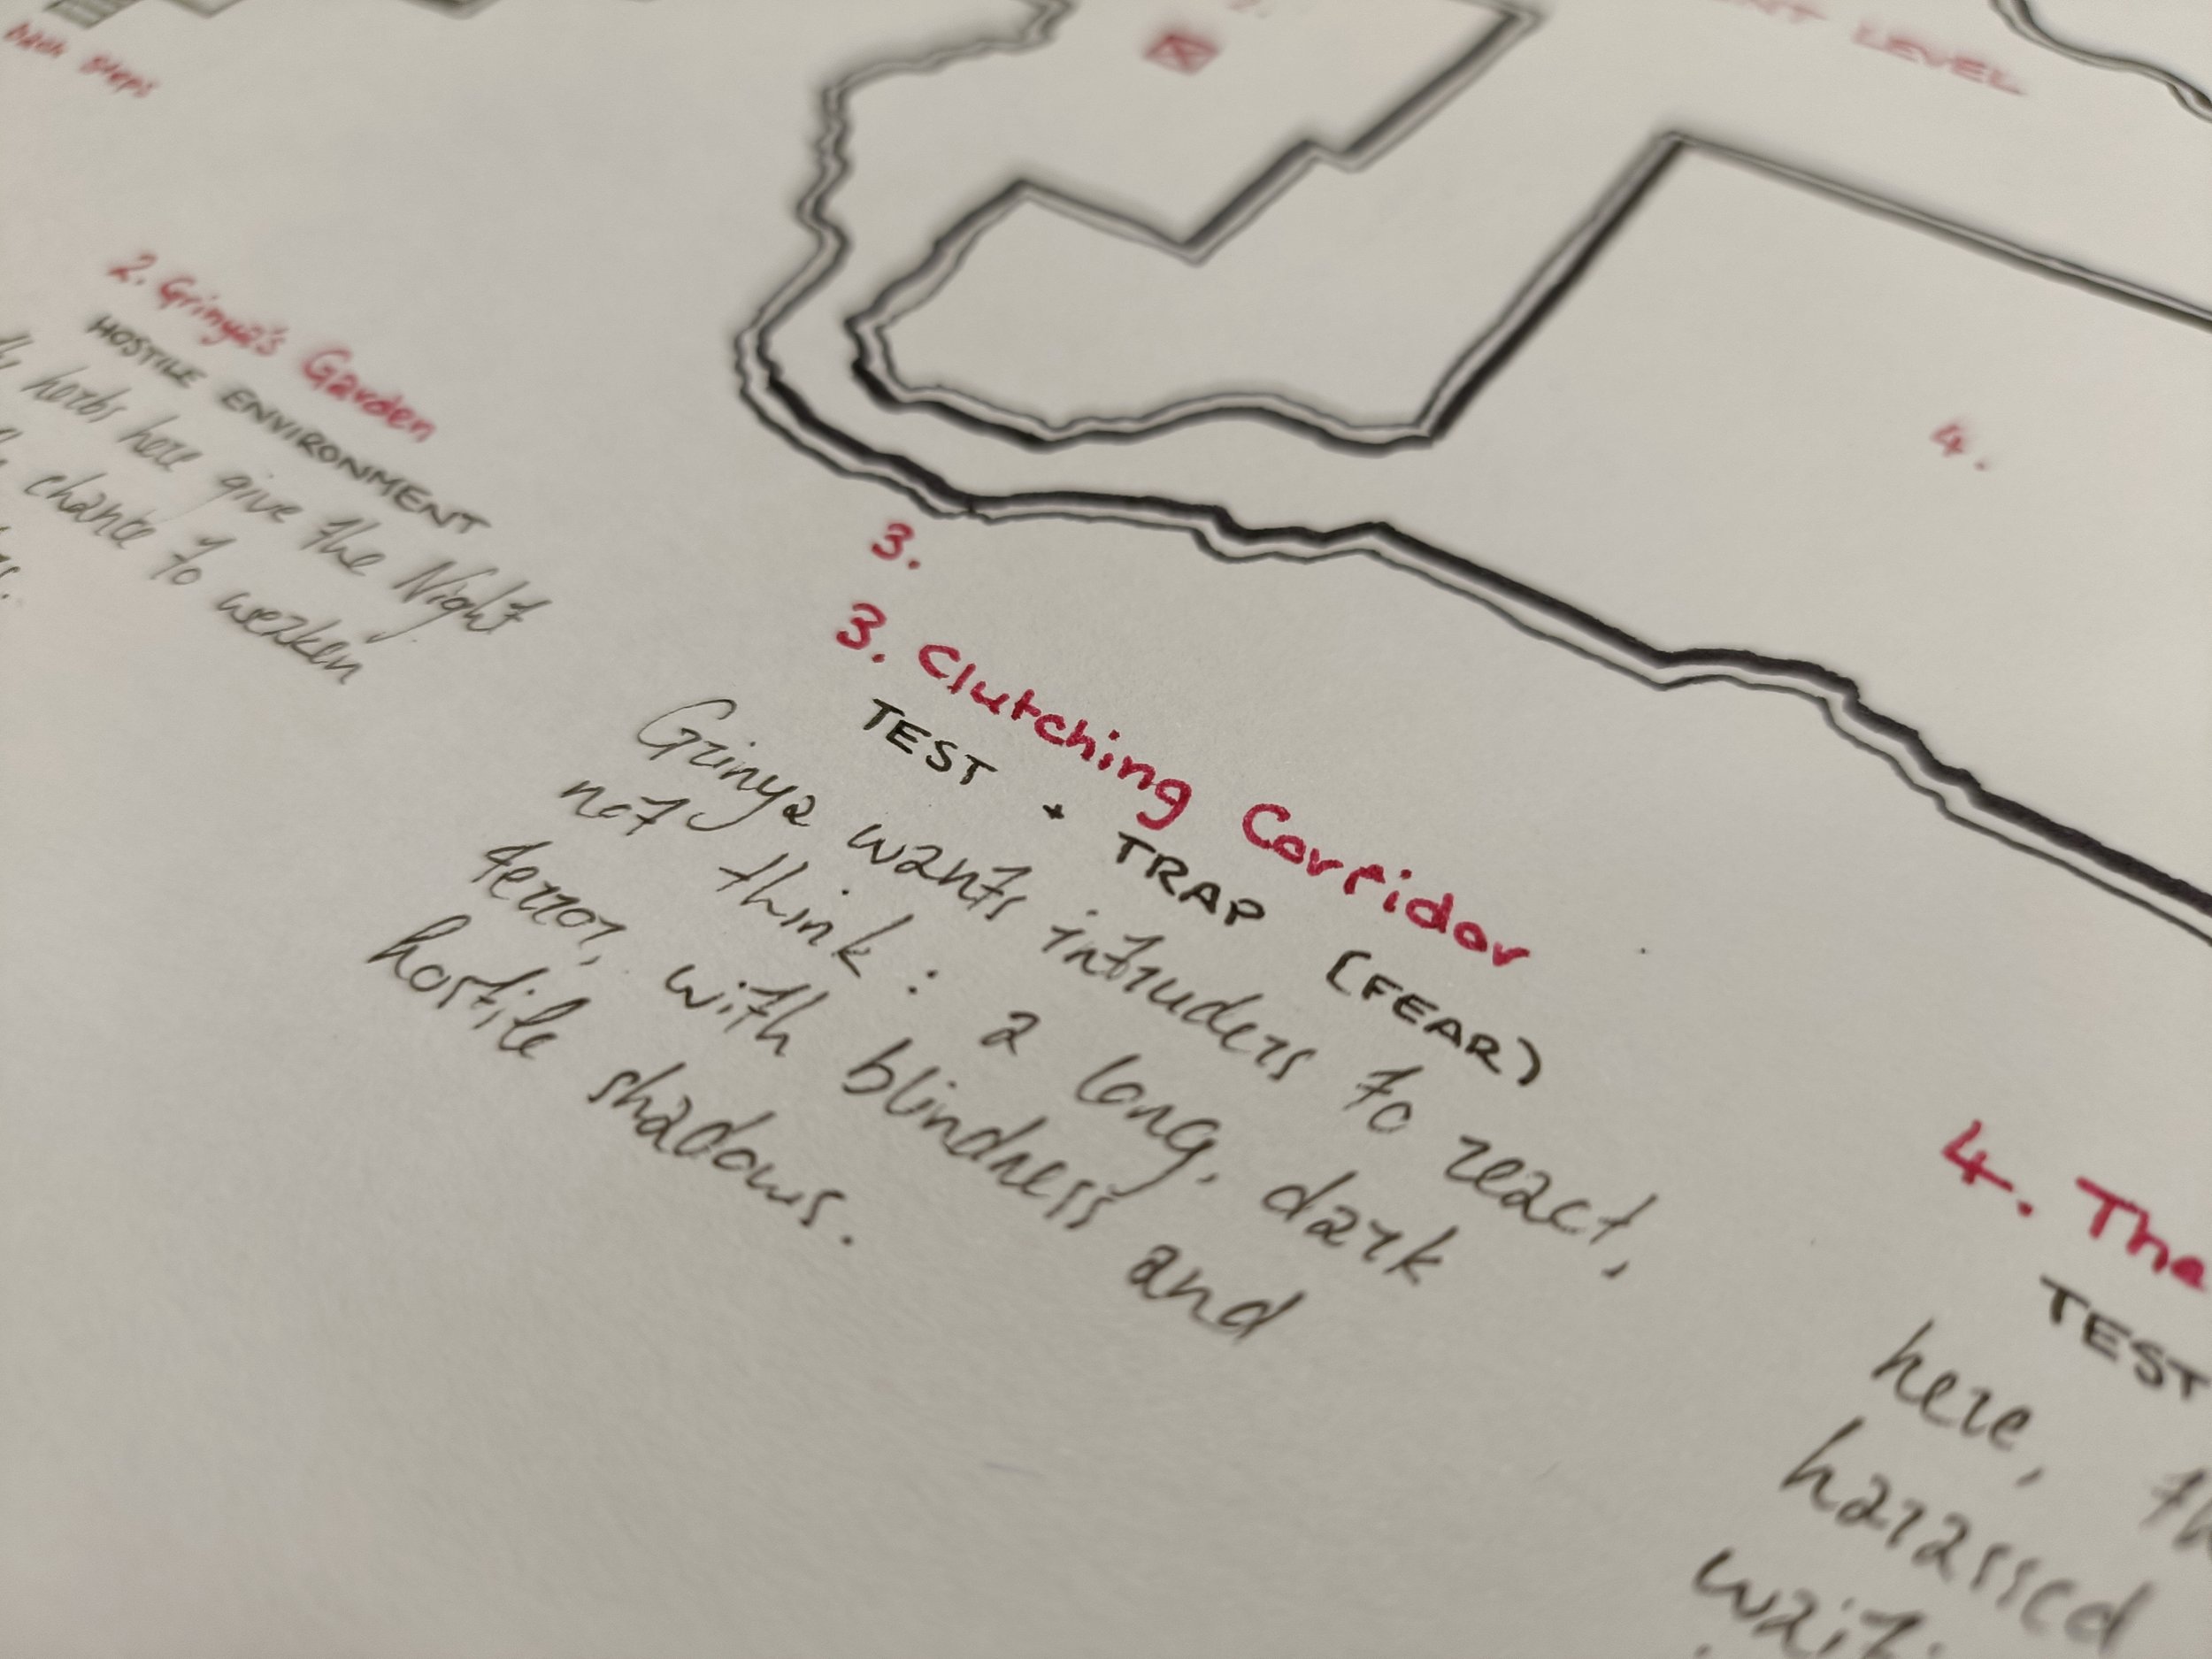 back steps
NT LEVEL
2. Grinya's Garden
HOSTILE ENVIRONMENT
herbs here give the Night
chance to weaken
4.
3.
3. Clutching Corridor
TEST + TRAP (FEAR)
Grinya wants intruders to react,
not think: a long, dark
terror, with blindness and
hostile shadows.
4. The
TEST
here, th
harassed
waiti